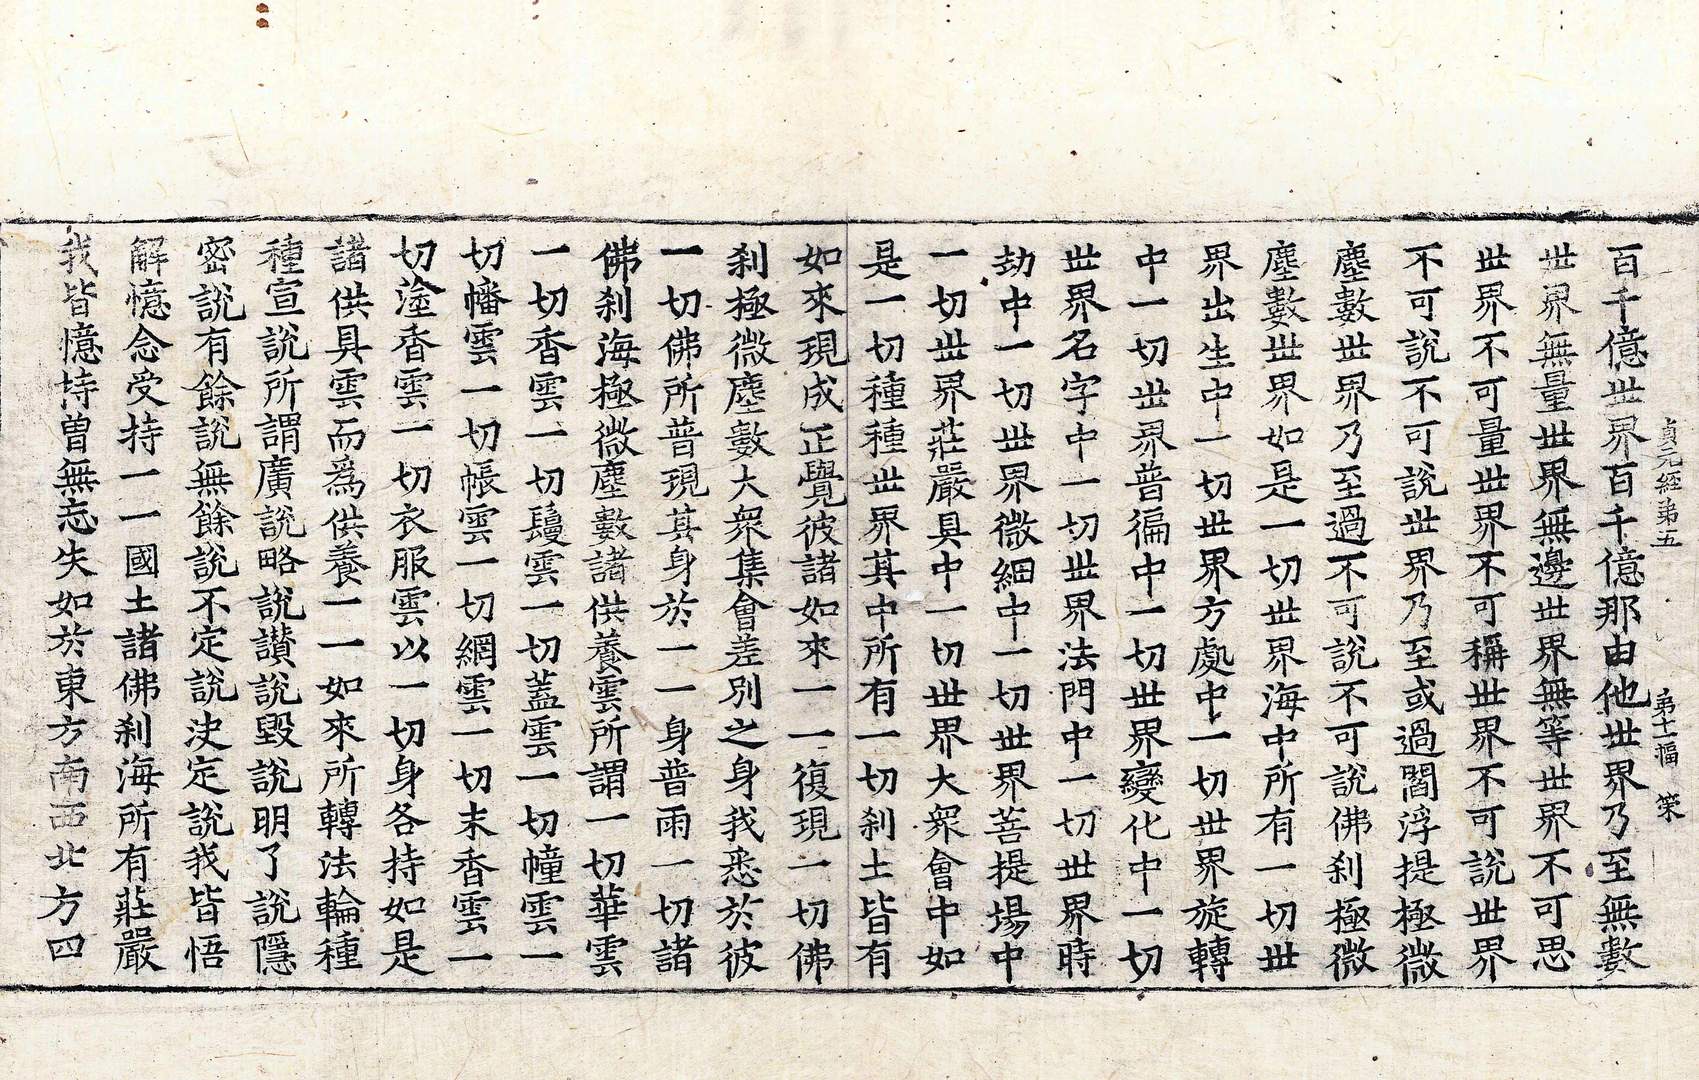 貞元經第五 第十一幅 策
百千億世界百千億那由他世界乃至無數
世界無量世界無邊世界無等世界不可思
世界不可量世界不可稱世界不可說世界
不可說不可說世界乃至或過閻浮提極微
塵數世界乃至過不可說不可說佛刹極微
塵數世界如是一切世界海中所有一切世
界出生中一切世界方處中一切世界旋轉
中一切世界普徧中一切世界變化中一切
世界名字中一切世界法門中一切世界時
劫中一切世界微細中一切世界菩提場中
一切世界莊嚴具中一切世界大衆會中如
是一切種種世界其中所有一切刹土皆有
如來現成正覺彼諸如來一一復現一切佛
刹極微塵數大衆集會差別之身我悉於彼
一切佛所普現其身於一一身普雨一切諸
佛刹海極微塵數諸供養雲所謂一切華雲
一切香雲一切鬘雲一切蓋雲一切幢雲一
切幡雲一切帳雲一切網雲一切末香雲一
切塗香雲一切衣服雲以一切身各持如是
諸供具雲而爲供養一一如來所轉法輪種
種宣說所謂廣說略說讃說毀說明了說隱
密說有餘說無餘說不定說決定說我皆悟
解憶念受持一一國土諸佛刹海所有莊嚴
我皆憶持曽無忘失如於東方南西北方四